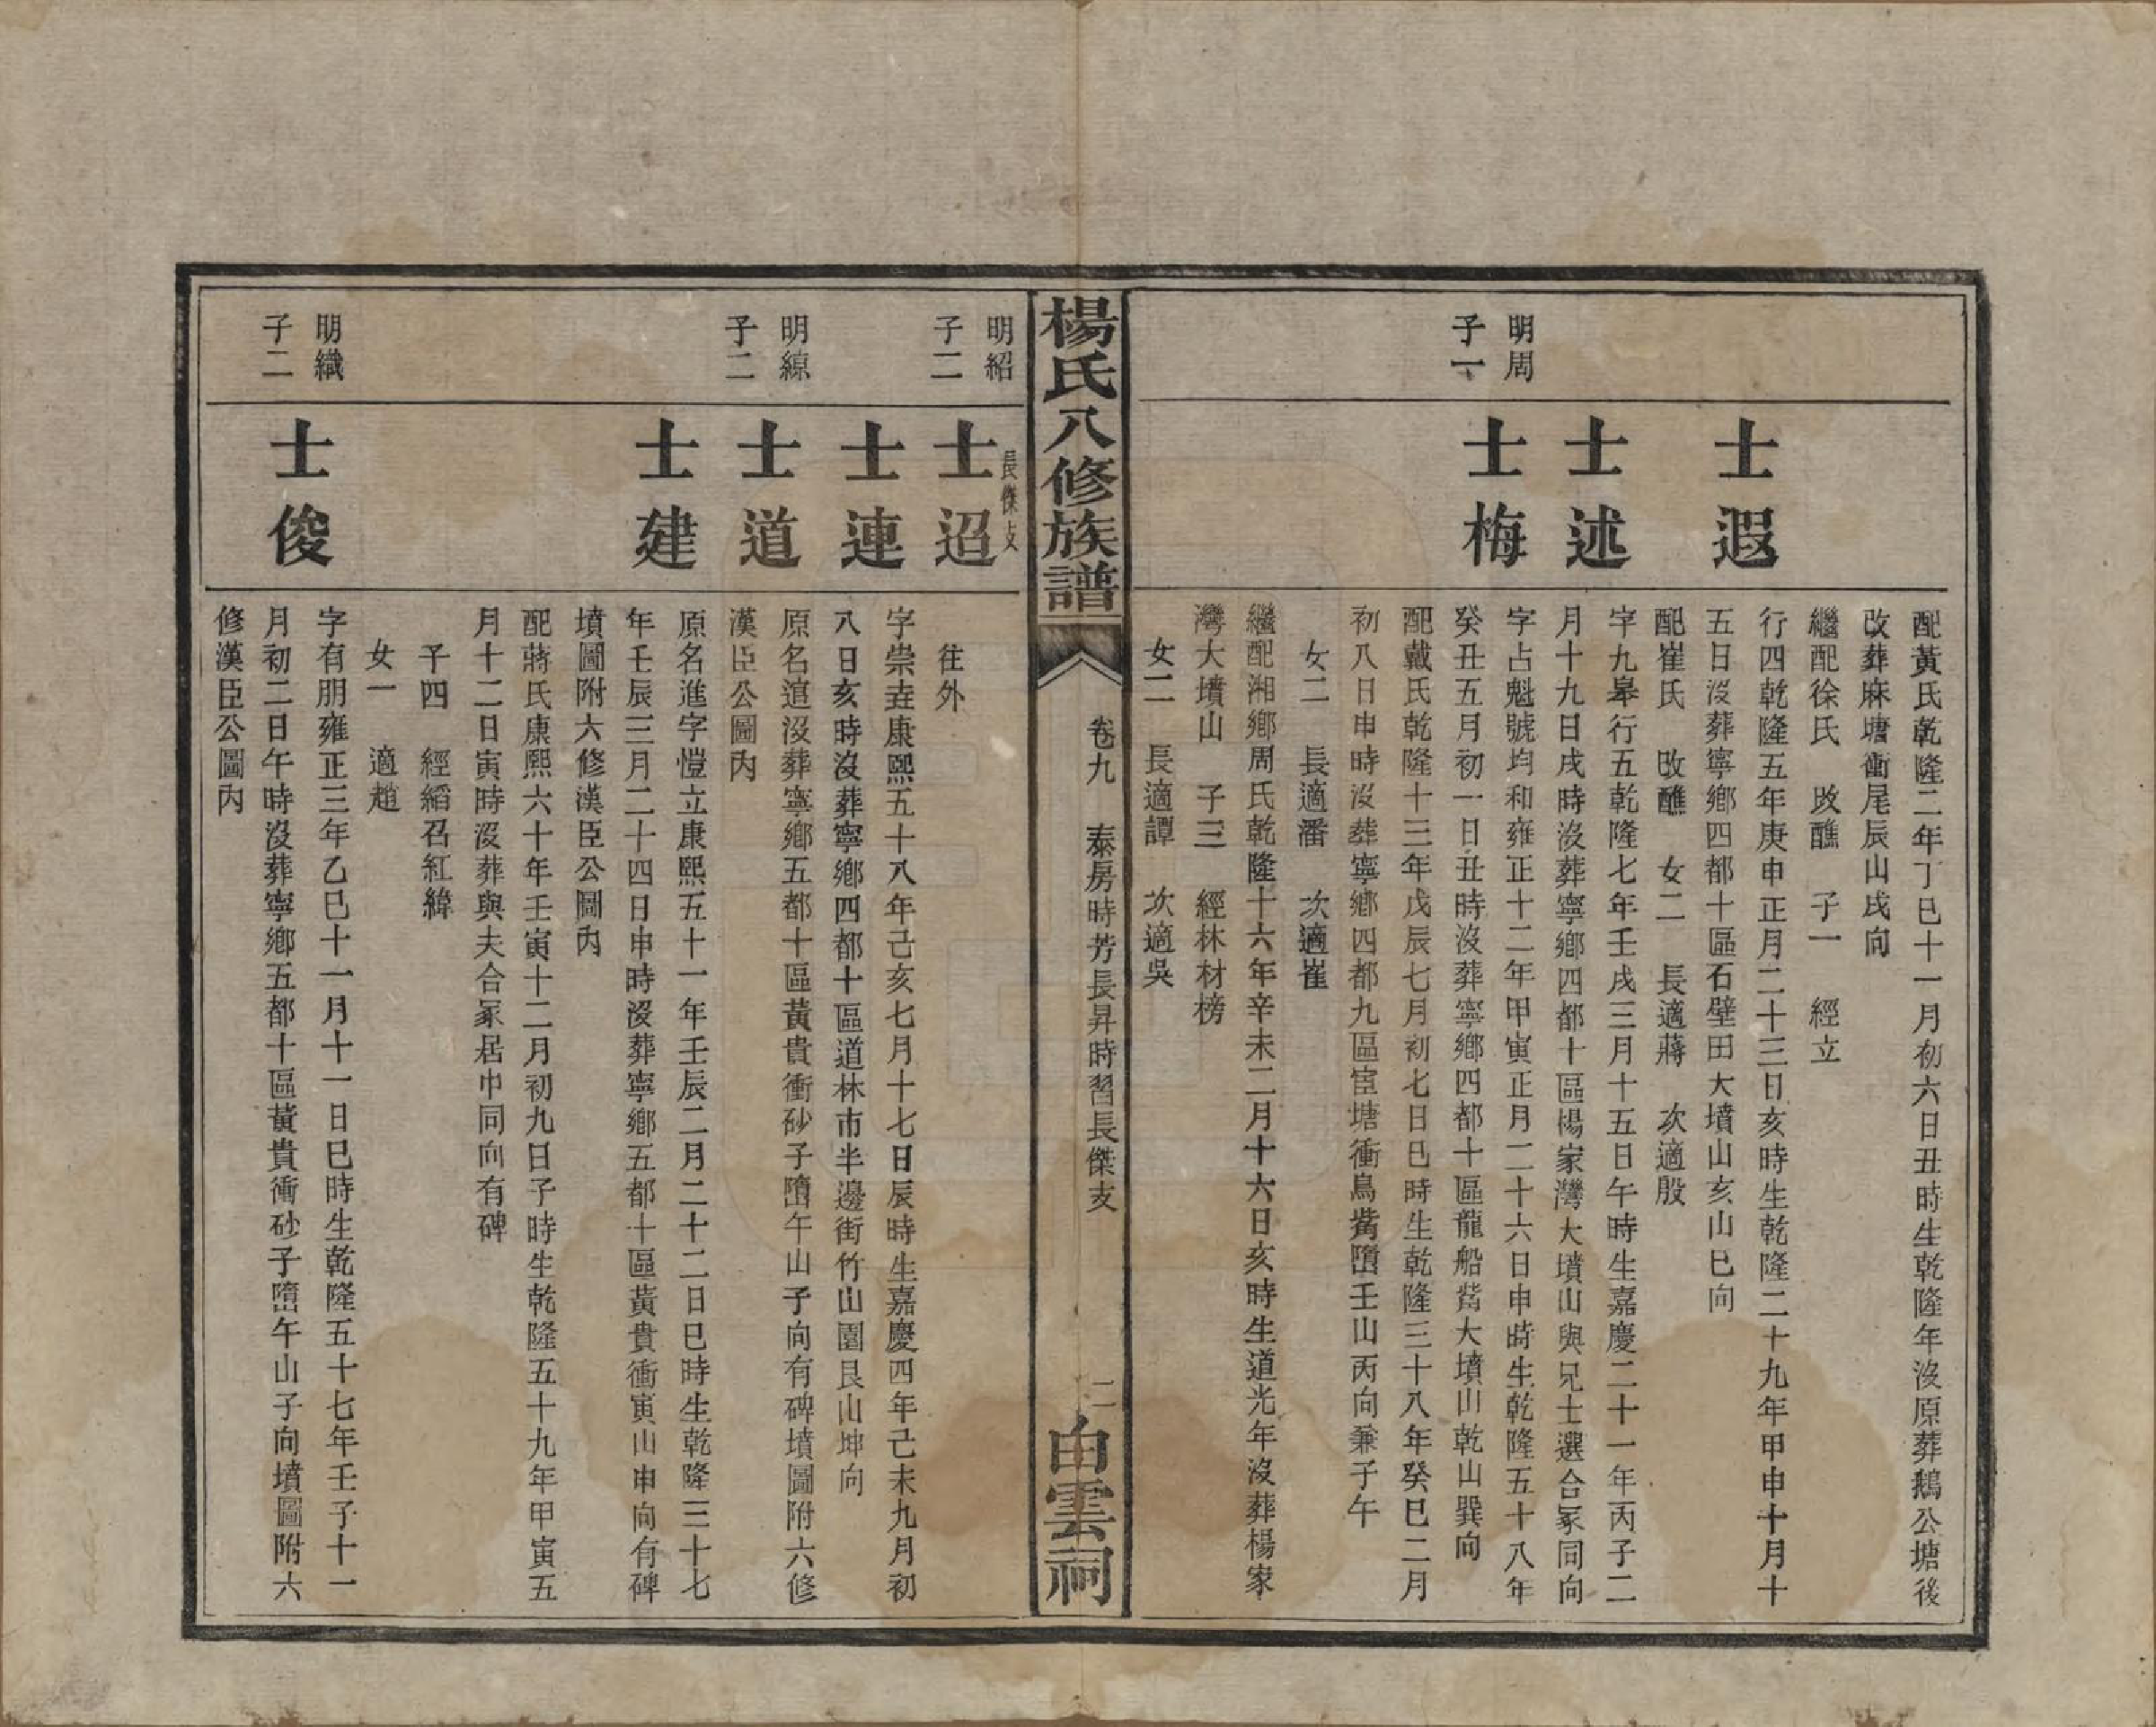 配黃氏乾隆二年丁巳十一月初六日丑時生乾隆年沒原葬鵝公塘後
改葬麻塘衝尾辰山戌向
繼配徐氏 改醮 子一 經立
士遐
行四乾隆五年庚申正月二十三日亥時生乾隆二十九年甲申十月十
五日沒葬寧鄉四都十區石壁田大墳山亥山巳向
配崔氏 改醮 女二 長適蔣 次適殷
士述
字九皋行五乾隆七年壬戌三月十五日午時生嘉慶二十一年丙子二
月十九日戌時沒葬寧鄉四都十區楊家灣大墳山與兄士選合冢同向
明周
子一
士梅
字占魁號均和雍正十二年甲寅正月二十六日申時生乾隆五十八年
癸丑五月初一日丑時沒葬寧鄉四都十區龍船觜大墳山乾山巽向
配戴氏乾隆十三年戊辰七月初七日巳時生乾隆三十八年癸巳二月
初八日申時沒葬寧鄉四都九區官塘衝鳥觜墮壬山丙向兼子午
女二 長適潘 次適崔
繼配湘鄉周氏乾隆十六年辛未二月十六日亥時生道光年沒葬楊家
灣大墳山 子三 經林材榜
女二 長適譚 次適吳
楊氏八修族譜
卷九 泰房時芳長昇時習長傑支
二
白雲祠
明紹
子二
長傑支
士迢
往外
士連
字崇垚康熙五十八年己亥七月十七日辰時生嘉慶四年己未九月初
八日亥時沒葬寧鄉四都十區道林市半邊街竹山園艮山坤向
明綡
子二
士道
原名逭沒葬寧鄉五都十區黃貴衝砂子墮午山子向有碑墳圖附六修
漢臣公圖內
士建
原名進字愷立康熙五十一年壬辰二月二十二日巳時生乾隆三十七
年壬辰三月二十四日申時沒葬寧鄉五都十區黃貴衝寅山申向有碑
墳圖附六修漢臣公圖內
配蔣氏康熙六十年壬寅十二月初九日子時生乾隆五十九年甲寅五
月十二日寅時沒葬與夫合冢居中同向有碑
子四 經縚召紅緯
女一 適趙
明織
子二
士俊
字有朋雍正三年乙巳十一月十一日巳時生乾隆五十七年壬子十一
月初二日午時沒葬寧鄉五都十區黃貴衝砂子墮午山子向墳圖附六
修漢臣公圖內